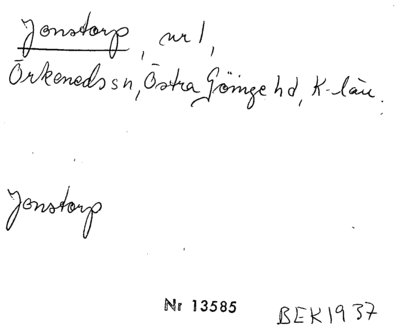 Jonstorp, nr 1,
Örkeneds sn, Östra Göinge hd, K-län.
Jonstorp
Nr 13585
BEK1937